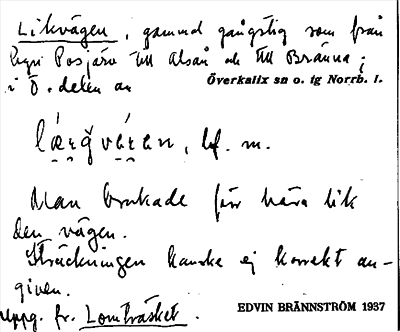 Likvägen, gammal gångstig som från
byn Posjärv till Alsån och till Bränna;
i Ö. delen av
Överkalix sn o. tg Norrb. l.
bf. m.
Man brukade förr bära lik
den vägen.
Sträckningen kanske ej korrekt an-
given.
Uppg. fr. Lomträsket.
EDVIN BRÄNNSTRÖM 1937